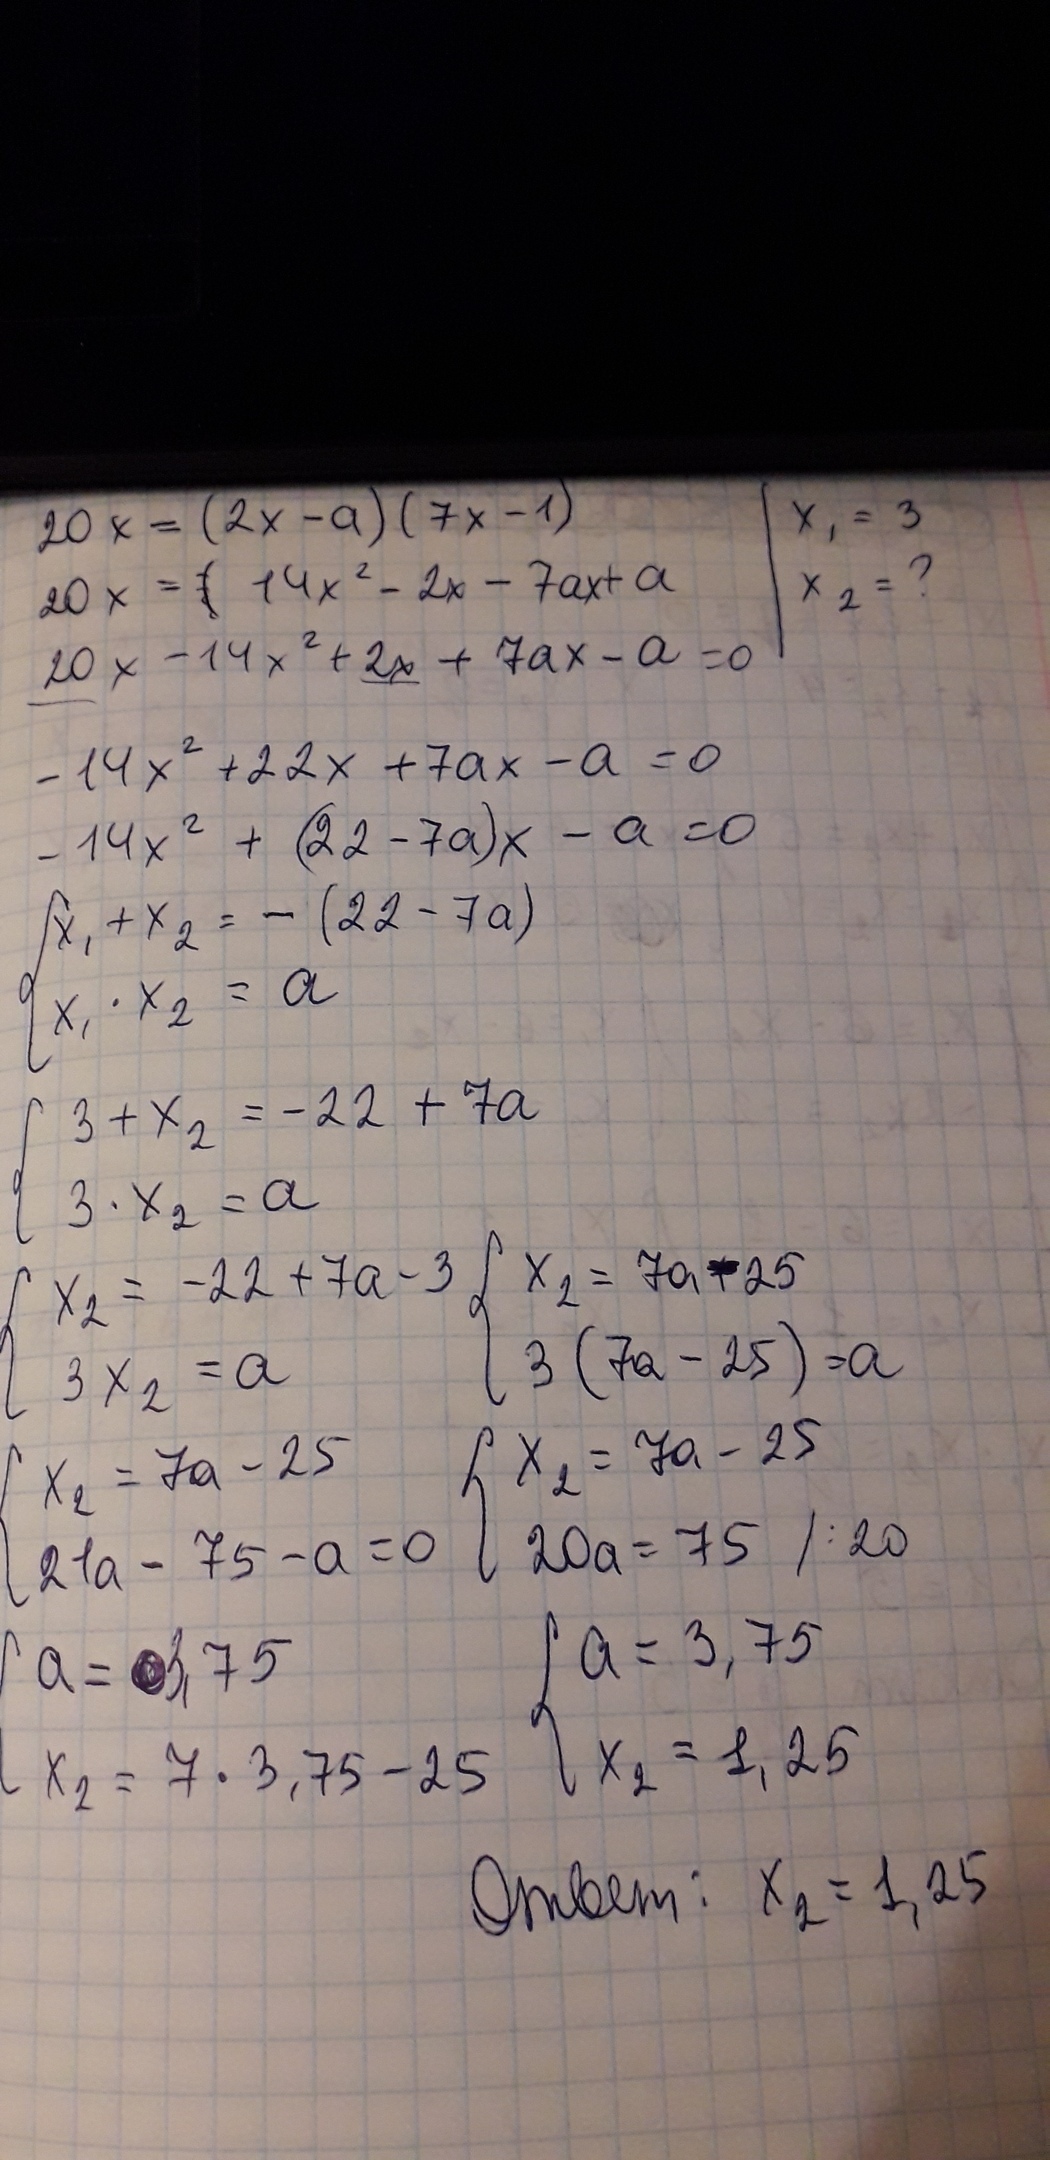 20x = (2x - a)(7x - 1)
x₁ = 3
20x = 14x² - 2x - 7ax + a
x₂ = ?
20x - 14x² + 2x + 7ax - a = 0
-14x² + 22x + 7ax - a = 0
-14x² + (22 - 7a)x - a = 0
x₁ + x₂ = -(22 - 7a)
x₁ · x₂ = a
3 + x₂ = -22 + 7a
3 · x₂ = a
x₂ = -22 + 7a - 3
3x₂ = a
x₂ = 7a - 25
3(7a - 25) = a
x₂ = 7a - 25
21a - 75 - a = 0
x₂ = 7a - 25
20a = 75 /: 20
a = 3,75
x₂ = 7 · 3,75 - 25
a = 3,75
x₂ = 1,25
Ответ: x₂ = 1,25